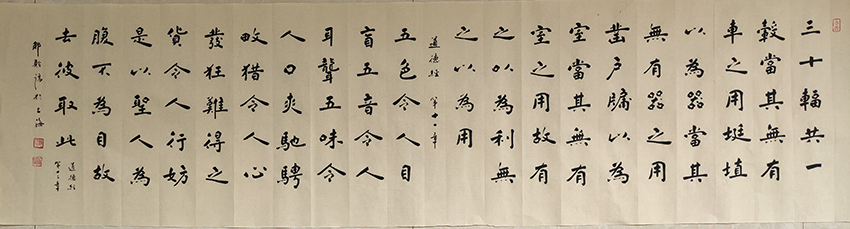 三十輻共一
轂當其無有
車之用埏埴
以為器當其
無有器之用
凿戶牖以為
室當其無有
室之用故有
之以為利無
之以為用
道德經 第十一章
五色令人目
盲五音令人
耳聾五味令
人口爽馳騁
畋猎令人心
發狂難得之
貨令人行妨
是以聖人為
腹不為目故
去彼取此
道德經
第十二章
於上海